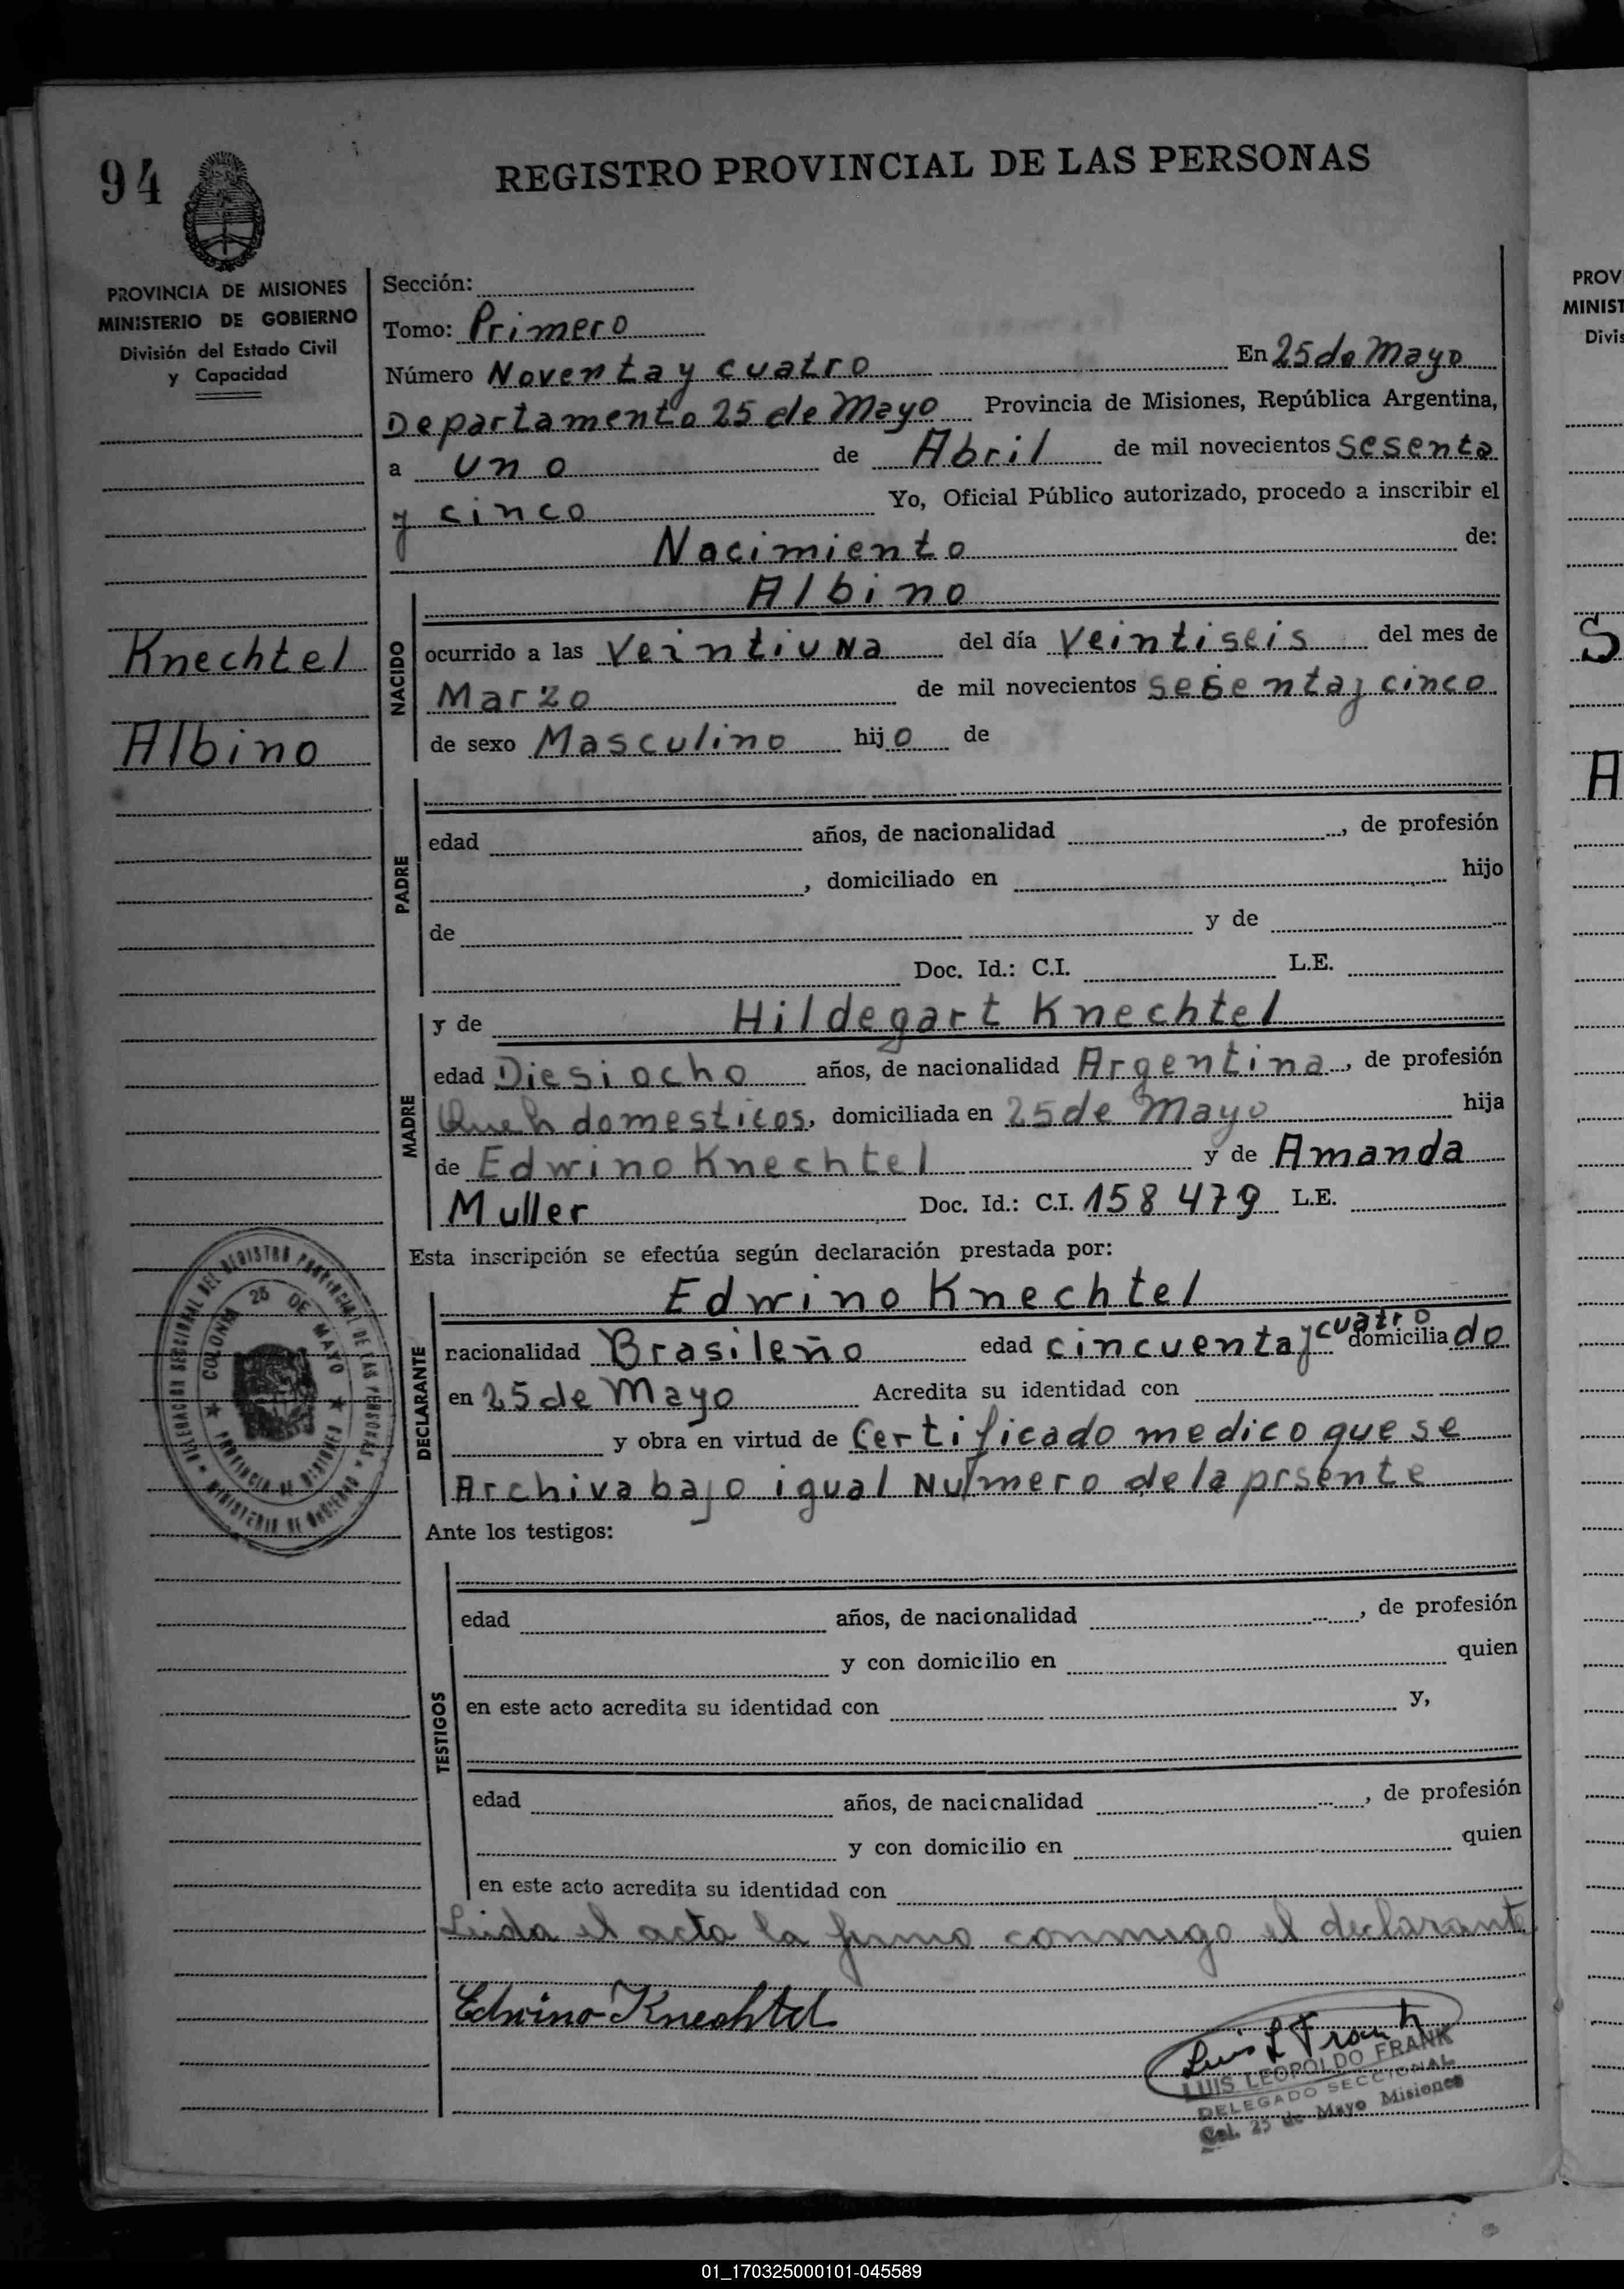 94
REGISTRO PROVINCIAL DE LAS PERSONAS
PROVINCIA DE MISIONES
MINISTERIO DE GOBIERNO
División del Estado Civil
y Capacidad
Knechtel
Albino
Sección:
Tomo: Primero
Número Noventa y cuatro En 25 de Mayo
Departamento 25 de Mayo Provincia de Misiones, República Argentina,
a uno de Abril de mil novecientos sesenta
y cinco Yo, Oficial Público autorizado, procedo a inscribir el
Nacimiento de:
NACIDO
Albino
ocurrido a las Veintiuna del día Veintiseis del mes de
Marzo de mil novecientos sesenta y cinco
de sexo Masculino hijo de
PADRE
edad años, de nacionalidad , de profesión
, domiciliado en hijo
de y de
Doc. Id.: C.I. L.E.
MADRE
y de Hildegart Knechtel
edad Diesiocho años, de nacionalidad Argentina, de profesión
domesticos, domiciliada en 25 de Mayo hija
de Edwino Knechtel y de Amanda
Muller Doc. Id.: C.I. 158479 L.E.
Esta inscripción se efectúa según declaración prestada por:
DECLARANTE
Edwino Knechtel
nacionalidad Brasileño edad cincuenta y cuatro domiciliado
en 25 de Mayo Acredita su identidad con
y obra en virtud de Certificado medico que se
Archiva bajo igual Numero de la prsente
Ante los testigos:
TESTIGOS
edad años, de nacionalidad , de profesión
y con domicilio en quien
en este acto acredita su identidad con y,
edad años, de nacicnalidad , de profesión
y con domicilio en quien
en este acto acredita su identidad con
Leida el acta la firma conmigo el declarante
Edwino Knechtel
Luis L Frank
LUIS LEOPOLDO FRANK
DELEGADO SECCIONAL
Col. 25 de Mayo Misiones
DELEGACION SECCIONAL DEL REGISTRO PROVINCIAL DE LAS PERSONAS
MINISTERIO DE GOBIERNO
COLONIA 25 DE MAYO
PROVINCIA DE MISIONES
PROV
MINIST
Divis
S
A
01_170325000101-045589